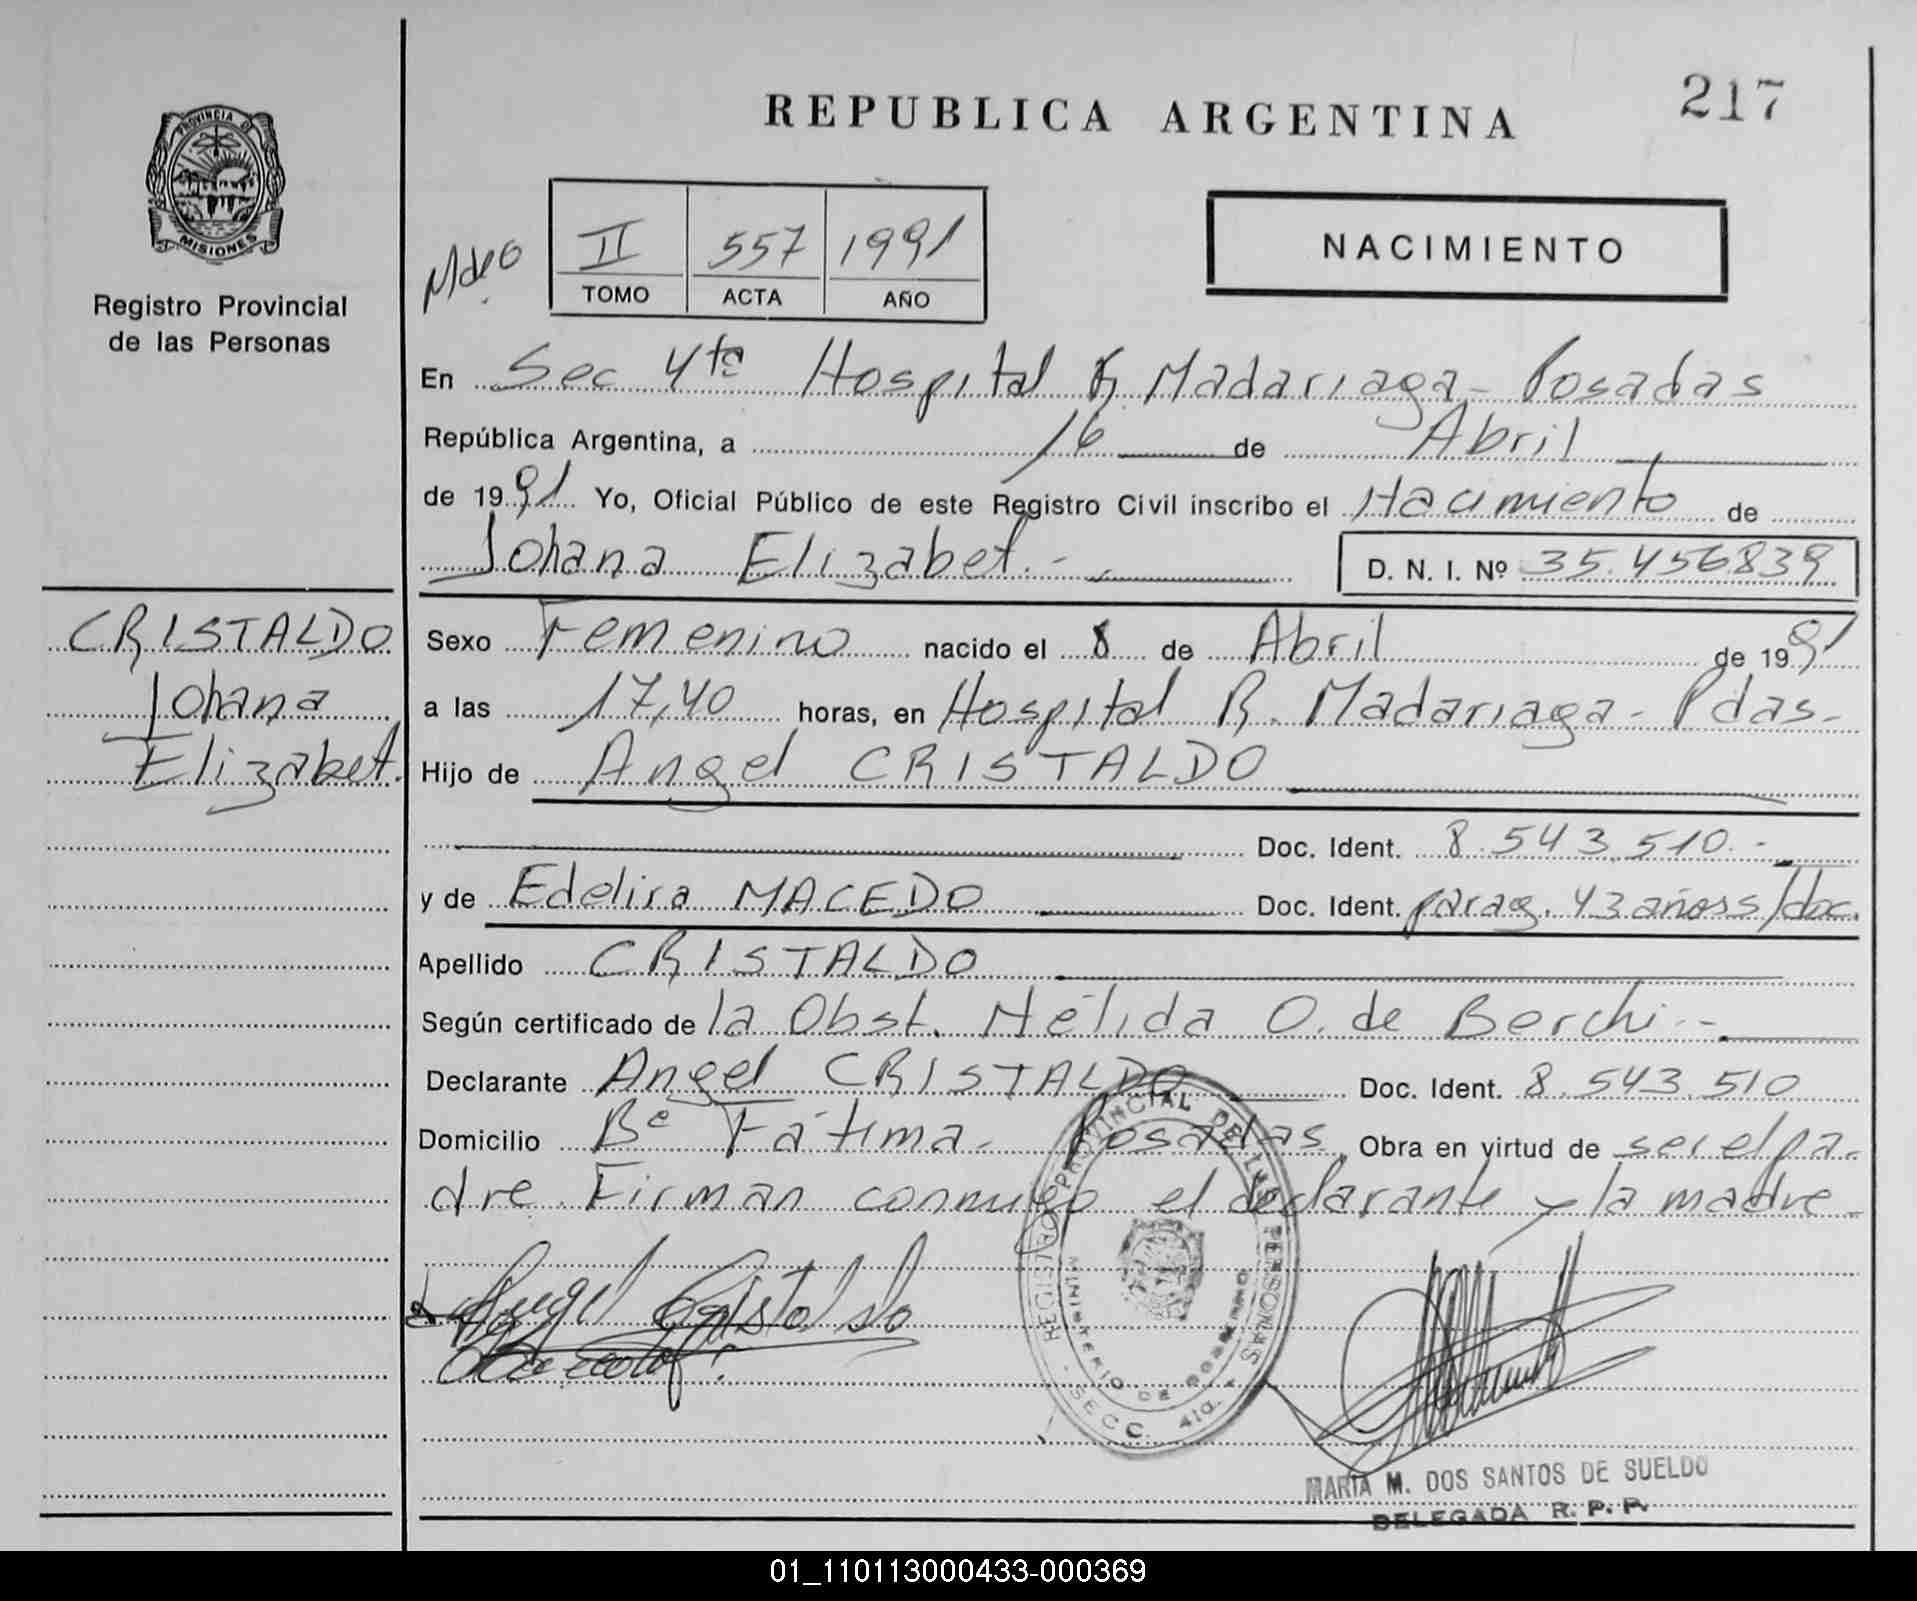 REPUBLICA ARGENTINA
217
PROVINCIA DE
MISIONES
Registro Provincial
de las Personas
II 557 1991
TOMO ACTA AÑO
NACIMIENTO
En Sec 4ta Hospital R. Madariaga - Posadas
República Argentina, a 16 de Abril
de 1991 Yo, Oficial Público de este Registro Civil inscribo el Nacimiento de
Johana Elizabet.- D. N. I. Nº 35.456839
CRISTALDO
Johana
Elizabet.
Sexo Femenino nacido el 8 de Abril de 1991
a las 17,40 horas, en Hospital R. Madariaga - Pdas-
Hijo de Angel CRISTALDO
Doc. Ident. 8.543.510.-
y de Edelira MACEDO Doc. Ident. parag. 43 años s/doc.
Apellido CRISTALDO
Según certificado de la Obst. Nélida O. de Berchi.-
Declarante Angel CRISTALDO Doc. Ident. 8.543.510
Domicilio Bº Fátima - Posadas, Obra en virtud de ser el pa-
dre. Firman conmigo el declarante y la madre-
Angel Cristaldo
REGISTRO PROVINCIAL DE LAS PERSONAS
MINISTERIO DE GOBIERNO
- SECC. 4ta. -
MARIA M. DOS SANTOS DE SUELDO
DELEGADA R. P. P.
01_110113000433-000369